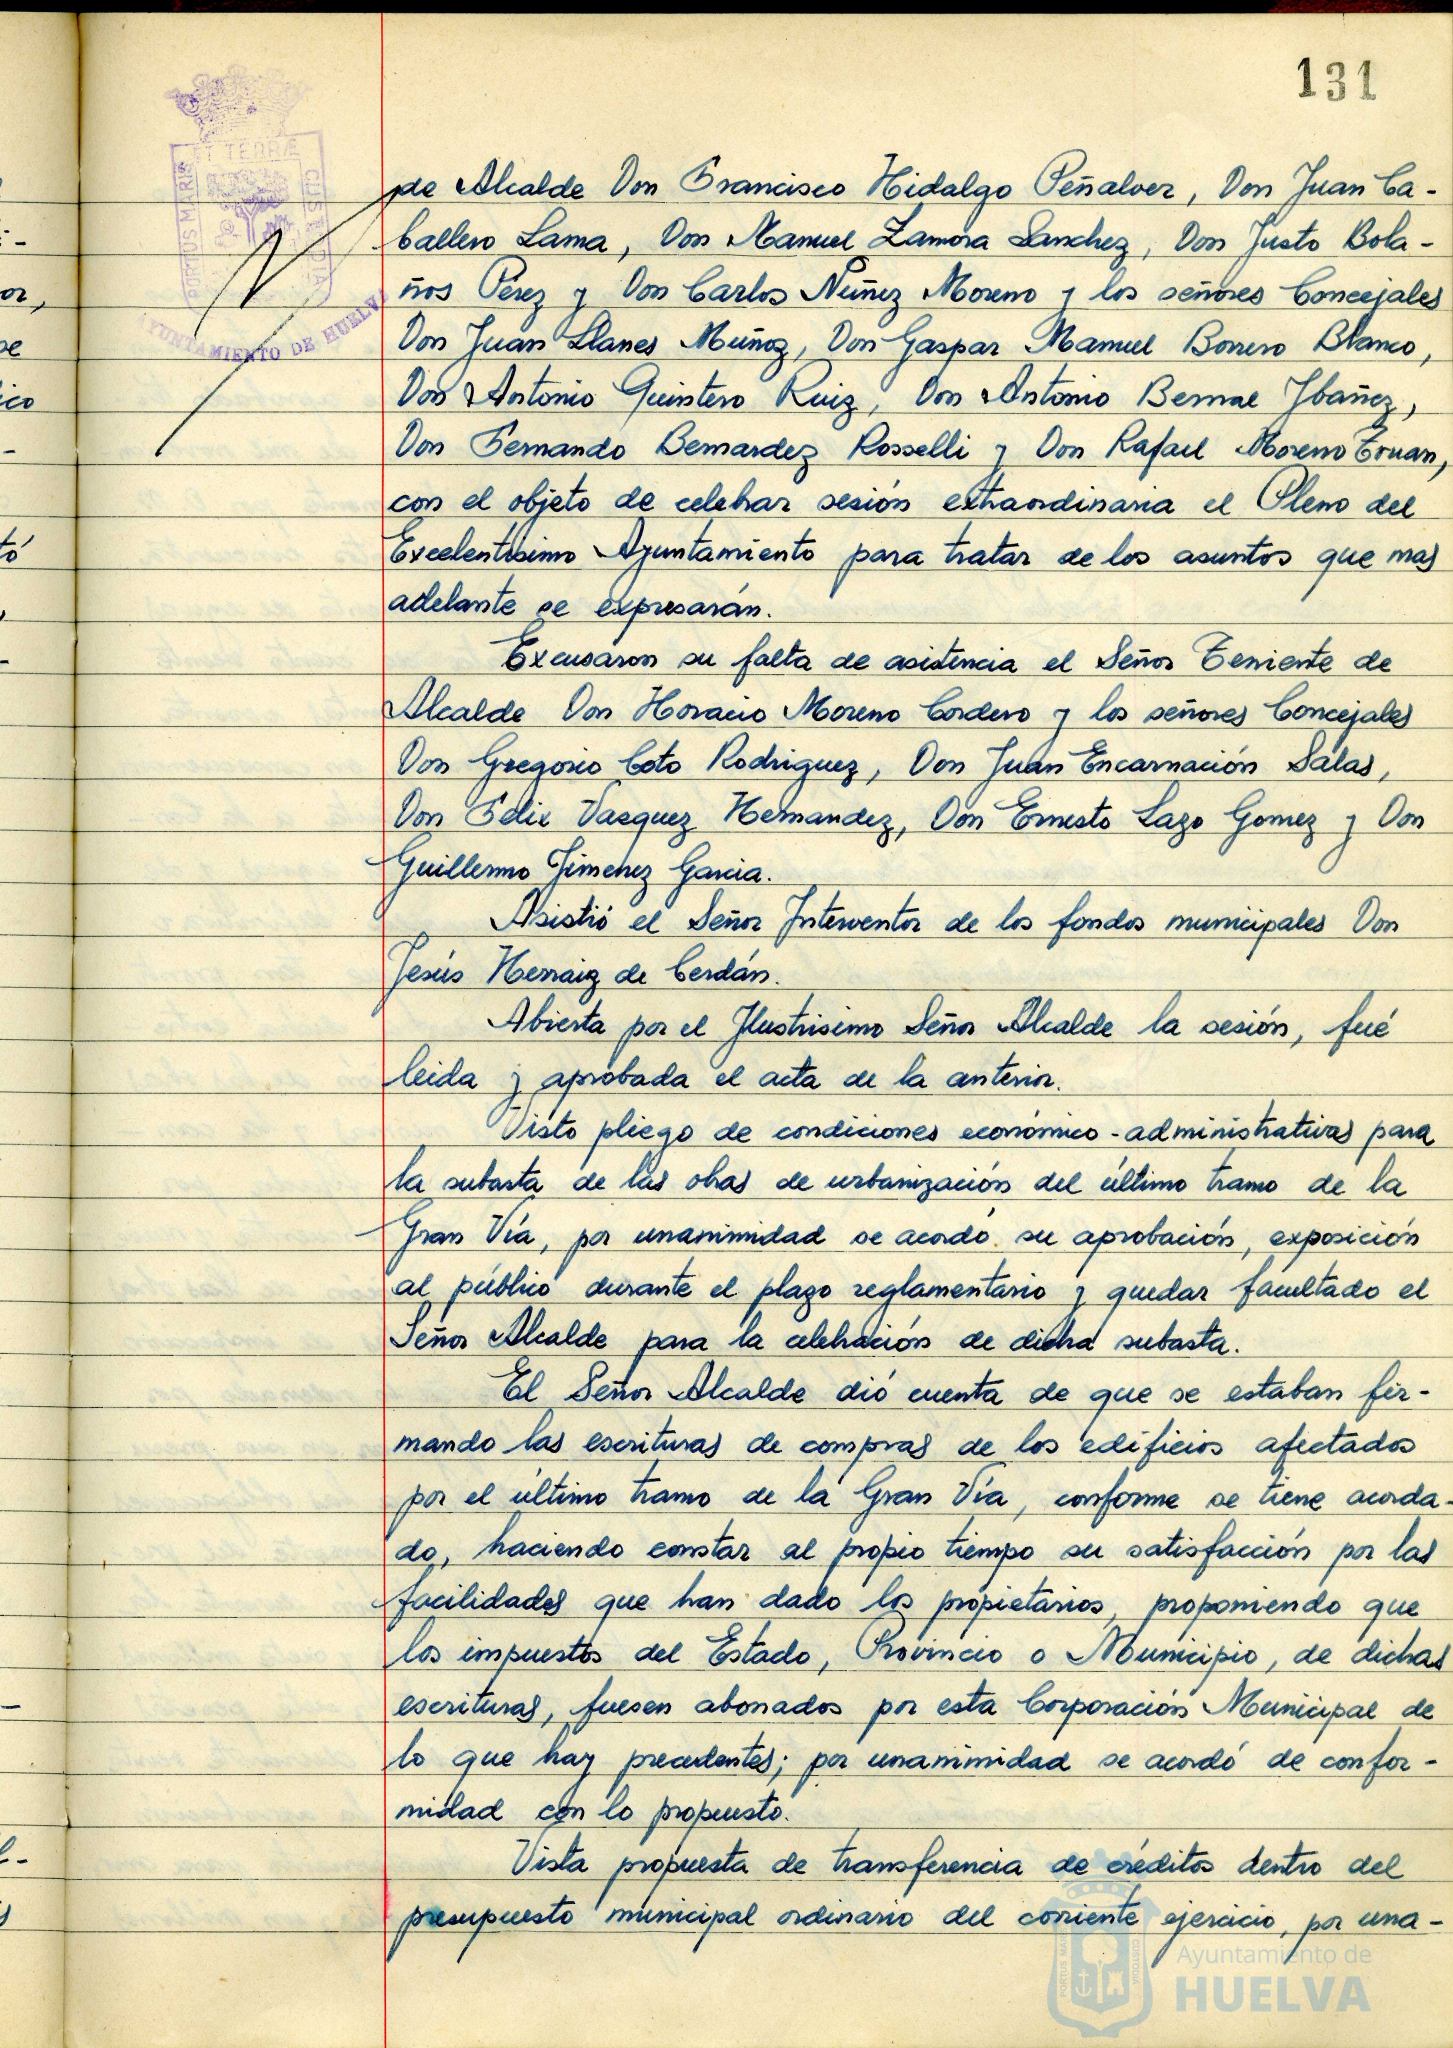 131
ET TERRÆ
PORTUS MARIS
CUSTODIA
AYUNTAMIENTO DE HUELVA
de Alcalde Don Francisco Hidalgo Peñalver, Don Juan Ca-
ballero Lama, Don Manuel Zamora Sanchez, Don Justo Bola-
ños Pérez y Don Carlos Núñez Moreno y los señores Concejales
Don Juan Llanes Muñoz, Don Gaspar Manuel Borrero Blanco,
Don Antonio Quintero Ruiz, Don Antonio Bernal Ibañez,
Don Fernando Bernardez Rosselli y Don Rafael Moreno
con el objeto de celebrar sesión extraordinaria el Pleno del
Excelentísimo Ayuntamiento para tratar de los asuntos que mas
adelante se expresarán.
Excusaron su falta de asistencia el Señor Teniente de
Alcalde Don Horacio Moreno Cordero y los señores Concejales
Don Gregorio Coto Rodriguez, Don Juan Encarnación Salas,
Don Felix Vazquez Hernandez, Don Ernesto Lazo Gomez y Don
Guillermo Jimenez Garcia.
Asistió el Señor Interventor de los fondos municipales Don
Jesús Herraiz de Cerdán.
Abierta por el Ilustrisimo Señor Alcalde la sesión, fué
leida y aprobada el acta de la anterior.
Visto pliego de condiciones económico-administrativas para
la subasta de las obras de urbanización del último tramo de la
Gran Vía, por unanimidad se acordó su aprobación, exposición
al público durante el plazo reglamentario y quedar facultado el
Señor Alcalde para la celebración de dicha subasta.
El Señor Alcalde dió cuenta de que se estaban fir-
mando las escrituras de compras de los edificios afectados
por el último tramo de la Gran Vía, conforme se tiene acorda-
do, haciendo constar al propio tiempo su satisfacción por las
facilidades que han dado los propietarios, proponiendo que
los impuestos del Estado, Provincio o Municipio, de dichas
escrituras, fuesen abonados por esta Corporación Municipal de
lo que hay precedentes; por unanimidad se acordó de confor-
midad con lo propuesto.
Vista propuesta de transferencia de créditos dentro del
presupuesto municipal ordinario del corriente ejercicio, por una-
Ayuntamiento de
HUELVA